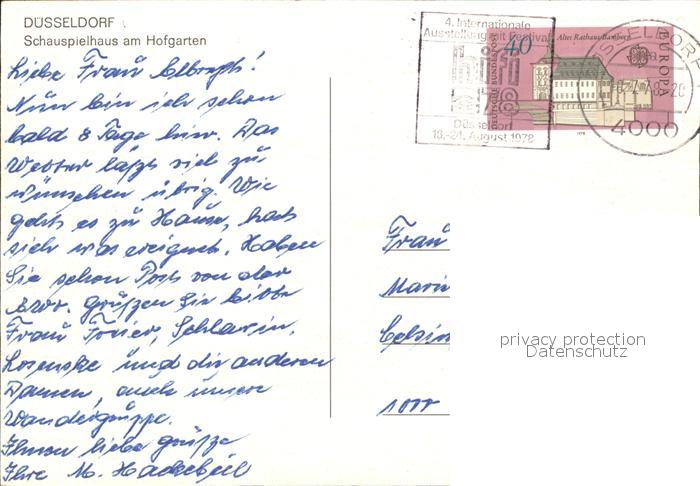 DÜSSELDORF
Schauspielhaus am Hofgarten
Liebe Frau
Nun bin ich schon
bald 8 Tage hier. Das
Wetter läßt viel zu
wünschen übrig. Wie
geht es zu Hause, hat
sich was ereignet. Haben
Sie schon Post von der
grüßen Sie bitte
Frau
und die anderen
Damen, auch unsere
Wandergruppe.
Ihnen liebe grüße
Ihre M.
4. Internationale
Ausstellung mit Festival
Düsseldorf
18.-24. August 1978
40
DEUTSCHE BUNDESPOST
Altes Rathaus Bamberg
EUROPA
1978
4000
Frau
1000
privacy protection
Datenschutz